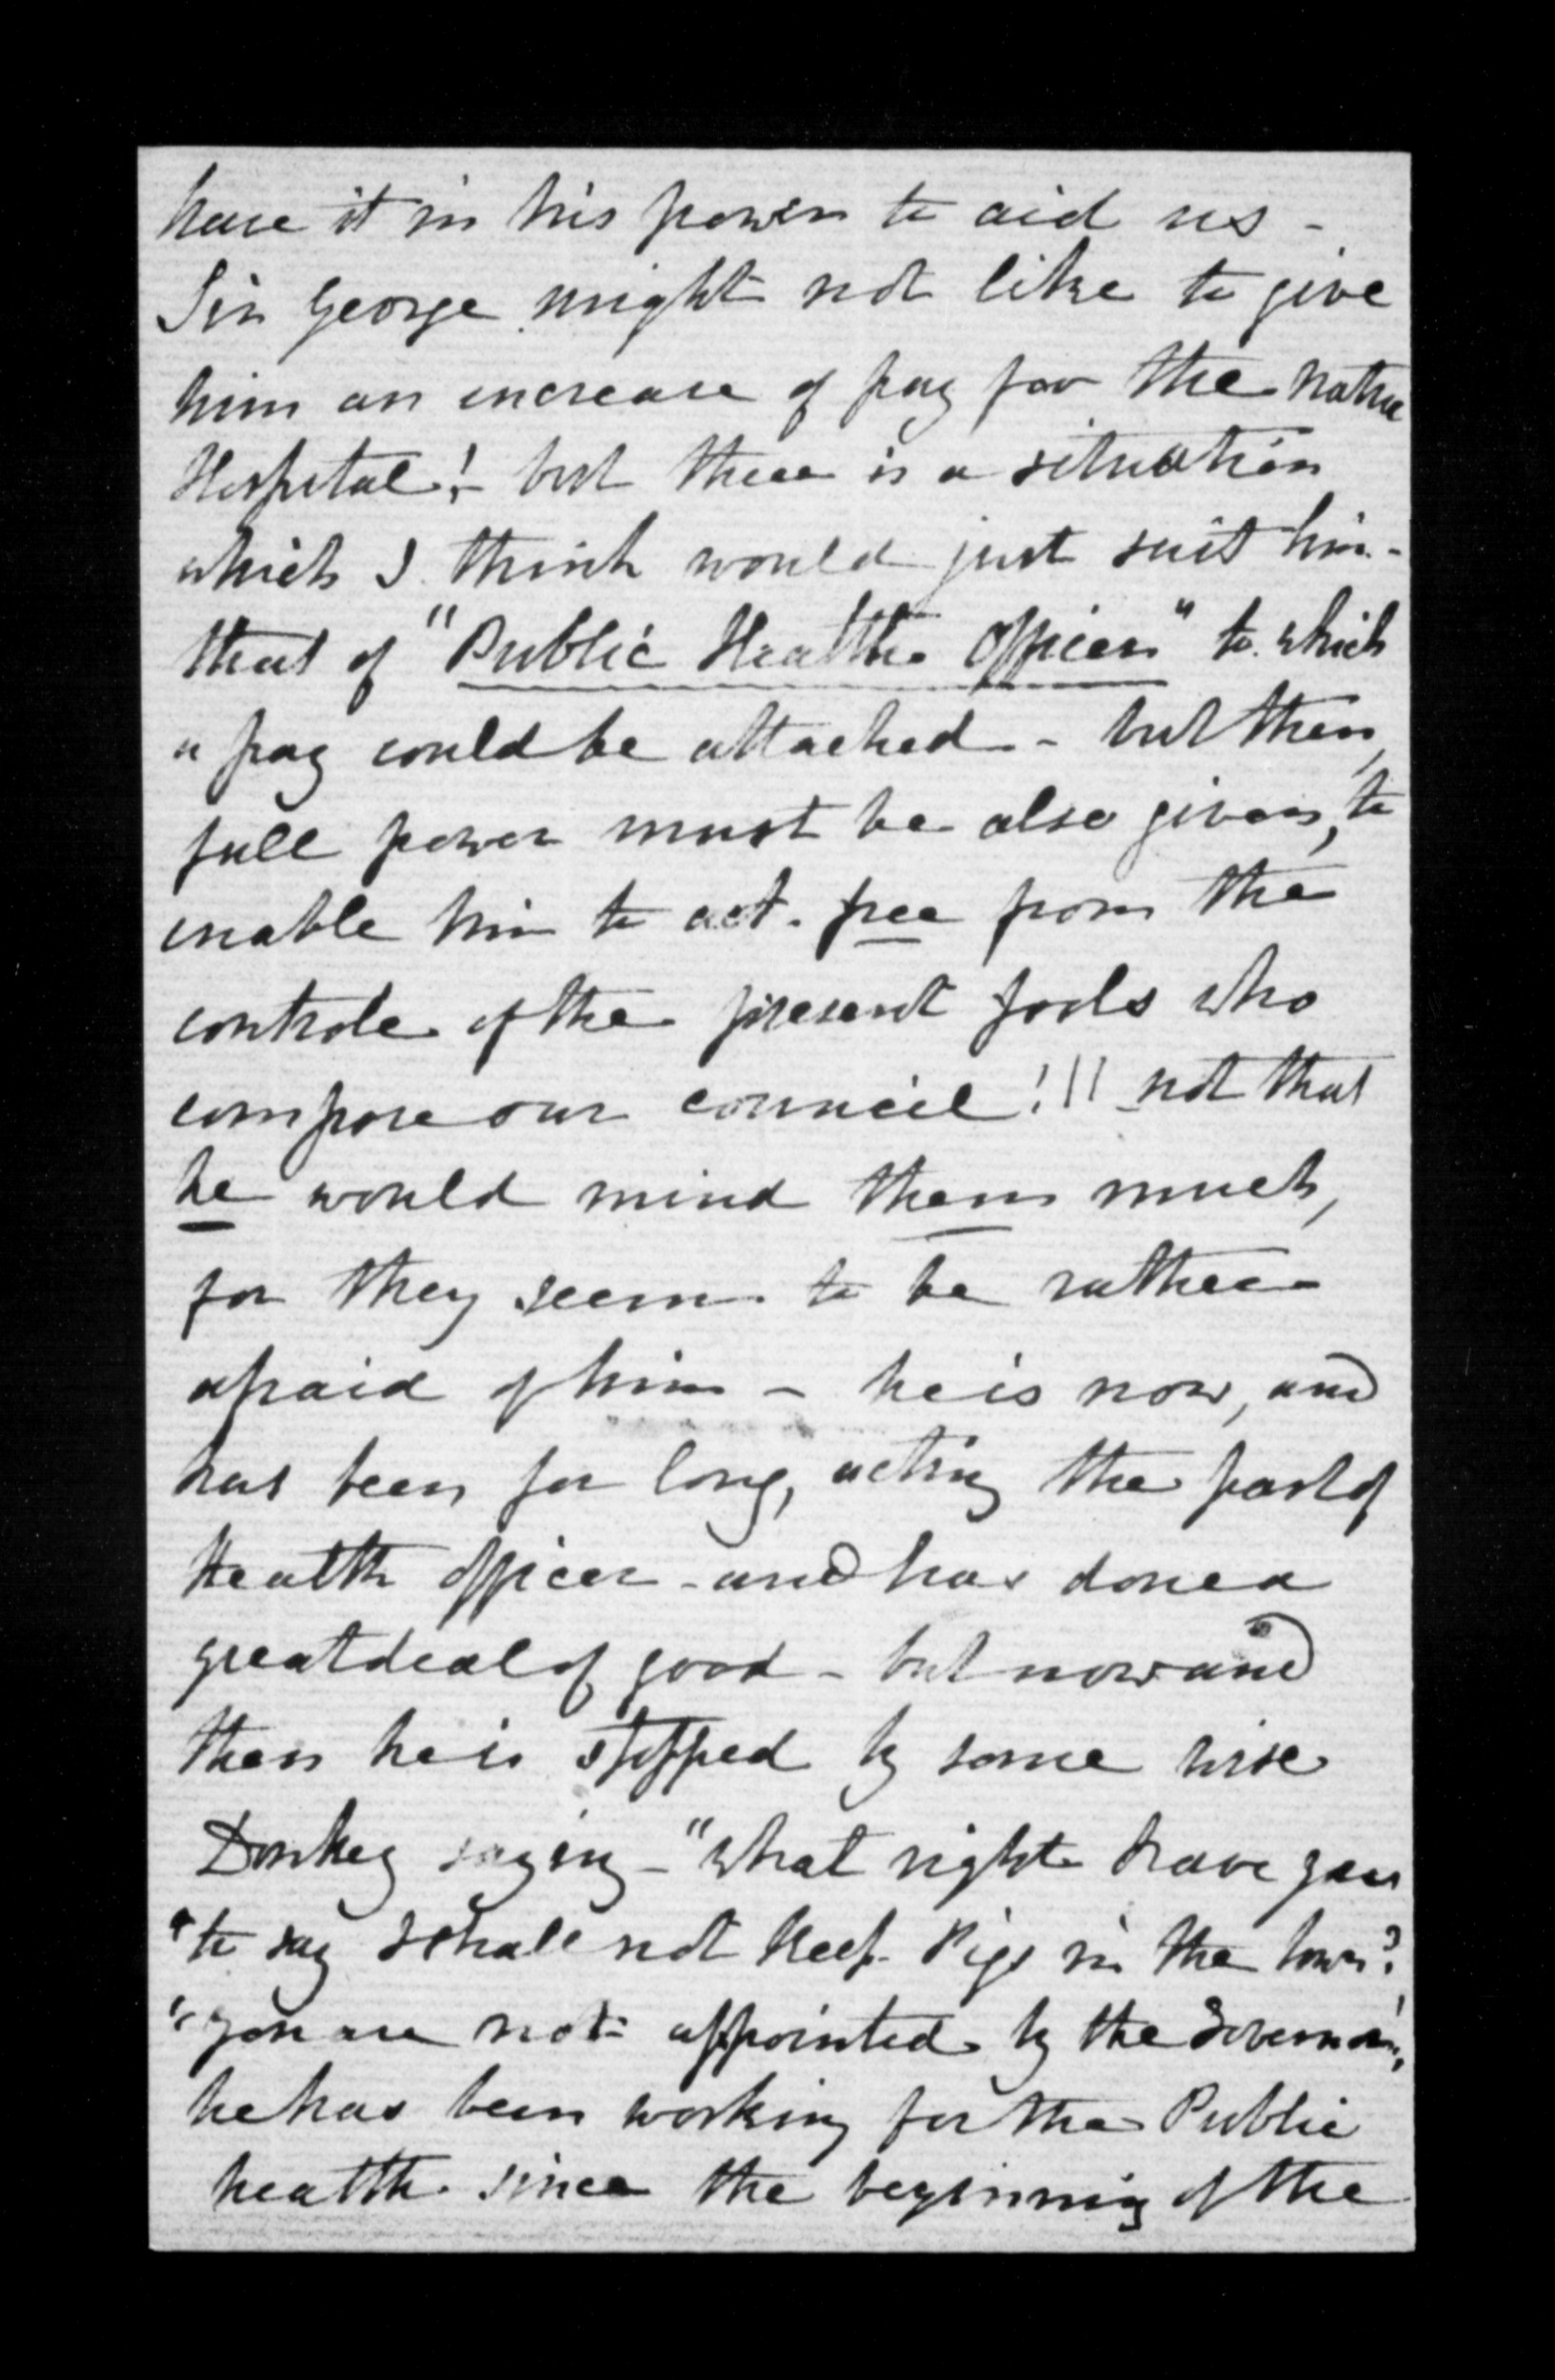 have it in his power to aid us -
Sir George might not like to give
him an increase of pay for the native
Hospital! - but there is a situation
which I think would just suit him -
that of "Public Health Officer" to which
a pay could be attached - but then,
full power must be also given, to
enable him to act. free from the
controle of the present fools who
compose our council!!! not that
he would mind them much,
for they seem to be rather
afraid of him - he is now, and
has been for long, acting the part of
Health officer - and has done a
great deal of good - but now and
then he is stopped by some wise
Donkey saying - "what right have you
"to say I shall not keep Pigs in the town?
"you are not appointed by the Governor",
he has been working for the Public
health since the beginning of the